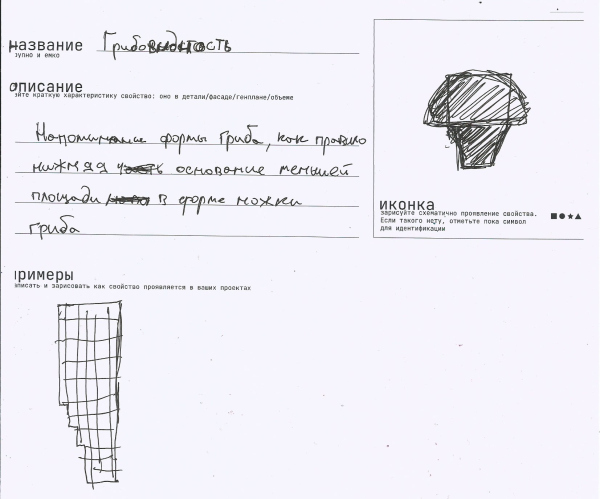 название Грибовидность
зупно и емко
описание
айте краткую характеристику свойство: оно в детали/фасаде/генплане/объеме
Напоминание формы гриба, как правило
нижняя часть основание меньшей
площади в форме ножки
гриба
иконка
зарисуйте схематично проявление свойства.
Если такого нету, отметьте пока символ
для идентификации
примеры
описать и зарисовать как свойство проявляется в ваших проектах